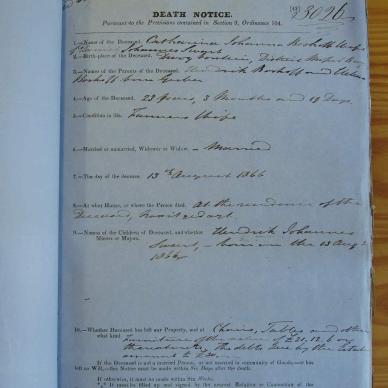 3026
DEATH NOTICE.
Pursuant to the Provisions contained in Section 9, Ordinance 104.
1.—Name of the Deceased. Catharina Johanna Boshoff
Johannes Swart
2.—Birth-place of the Deceased.
3.—Names of the Parents of the Deceased. Hendrik Boshoff and
Boshoff born
4.—Age of the Deceased. 23 Years, 3 Months and 19 Days
5.—Condition in life. Farmers Wife
6.—Married or unmarried, Widower or Widow. – Married
7.—The day of the decease. 13th August 1866
8.—At what House, or where the Person died. At the residence of the
Deceased,
9.—Names of the Children of Deceased, and whether Hendrik Johannes
Minors or Majors. Swart, – born on the 13 Aug
1866
10.—Whether Deceased has left any Property, and of Chairs, Tables and other
what kind. furniture of the value of £21.12.6 or
thereabout, the debts due by the Estate
amount to
If the Deceased is not a married Person, or not married in community of Goods—or has
left no Will,—this Notice must be made within Six Days after the death.
If otherwise, it must be made within Six Weeks.
It must be filled up and signed by the nearest Relation or Connection of the